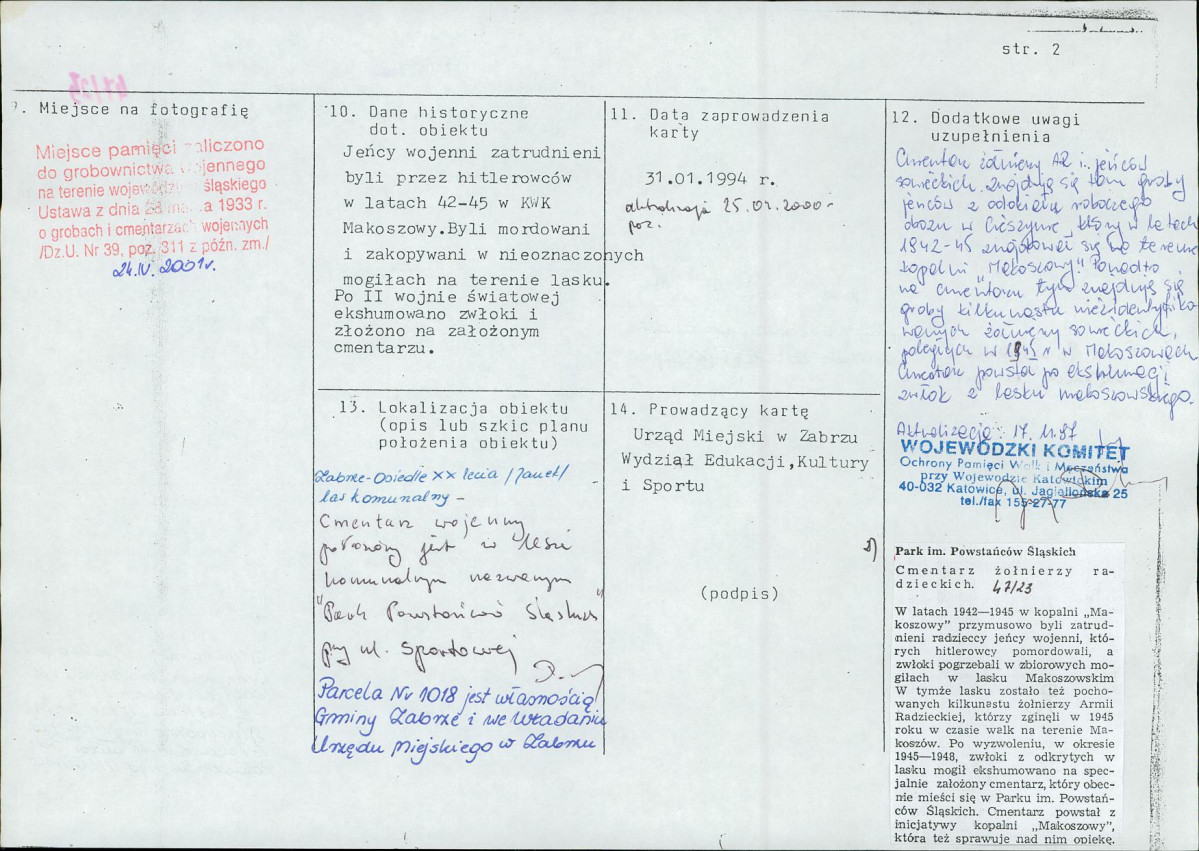 str. 2
9. Miejsce na fotografię
Miejsce pamięci zaliczono
do grobownictwa wojennego
na terenie województwa śląskiego
Ustawa z dnia 28 marca 1933 r.
o grobach i cmentarzach wojennych
/Dz.U. Nr 39, poz. 311 z późn. zm./
24.IV.2001r.
10. Dane historyczne
dot. obiektu
Jeńcy wojenni zatrudnieni
byli przez hitlerowców
w latach 42-45 w KWK
Makoszowy.Byli mordowani
i zakopywani w nieoznaczonych
mogiłach na terenie lasku.
Po II wojnie światowej
ekshumowano zwłoki i
złożono na założonym
cmentarzu.
11. Data zaprowadzenia
karty
31.01.1994 r.
aktualizacja 25.02.2000-
12. Dodatkowe uwagi
uzupełnienia
Cmentarz żołnierzy AR i jeńców
sowieckich. znajdują się tam groby
jeńców z oddziału roboczego
obozu w Cieszynie, który w latach
1942-45 znajdował się na terenie
kopalni "Makoszowy". Ponadto
na cmentarzu tym znajdują się
groby kilkunastu niezidentyfiko
wanych żołnierzy sowieckich,
poległych w 1945 r w Makoszowach
Cmentarz powstał po ekshumacji
zwłok z lasku makoszowskiego.
Aktualizacja: 17.11.97
WOJEWÓDZKI KOMITET
Ochrony Pamięci Walk i Męczeństwa
przy Wojewodzie Katowickim
40-032 Katowice, ul. Jagiellońska 25
tel./fax 155-27-77
13. Lokalizacja obiektu
(opis lub szkic planu
położenia obiektu)
Zabrze-Osiedle XX lecia /Janek/
las komunalny -
Cmentarz wojenny
położony jest w lesie
komunalnym nazwanym
"Park Powstańców Śląskich"
przy ul. Sportowej
Parcela Nr 1018 jest własnością
Gminy Zabrze i we władaniu
Urzędu Miejskiego w Zabrzu
14. Prowadzący kartę
Urząd Miejski w Zabrzu
Wydział Edukacji,Kultury
i Sportu
(podpis)
Park im. Powstańców Śląskich
Cmentarz żołnierzy ra-
dzieckich. 47/23
W latach 1942—1945 w kopalni „Ma-
koszowy” przymusowo byli zatrud-
nieni radzieccy jeńcy wojenni, któ-
rych hitlerowcy pomordowali, a
zwłoki pogrzebali w zbiorowych mo-
giłach w lasku Makoszowskim
W tymże lasku zostało też pocho-
wanych kilkunastu żołnierzy Armii
Radzieckiej, którzy zginęli w 1945
roku w czasie walk na terenie Ma-
koszów. Po wyzwoleniu, w okresie
1945—1948, zwłoki z odkrytych w
lasku mogił ekshumowano na spec-
jalnie założony cmentarz, który obec-
nie mieści się w Parku im. Powstań-
ców Śląskich. Cmentarz powstał z
inicjatywy kopalni „Makoszowy”,
która też sprawuje nad nim opiekę.